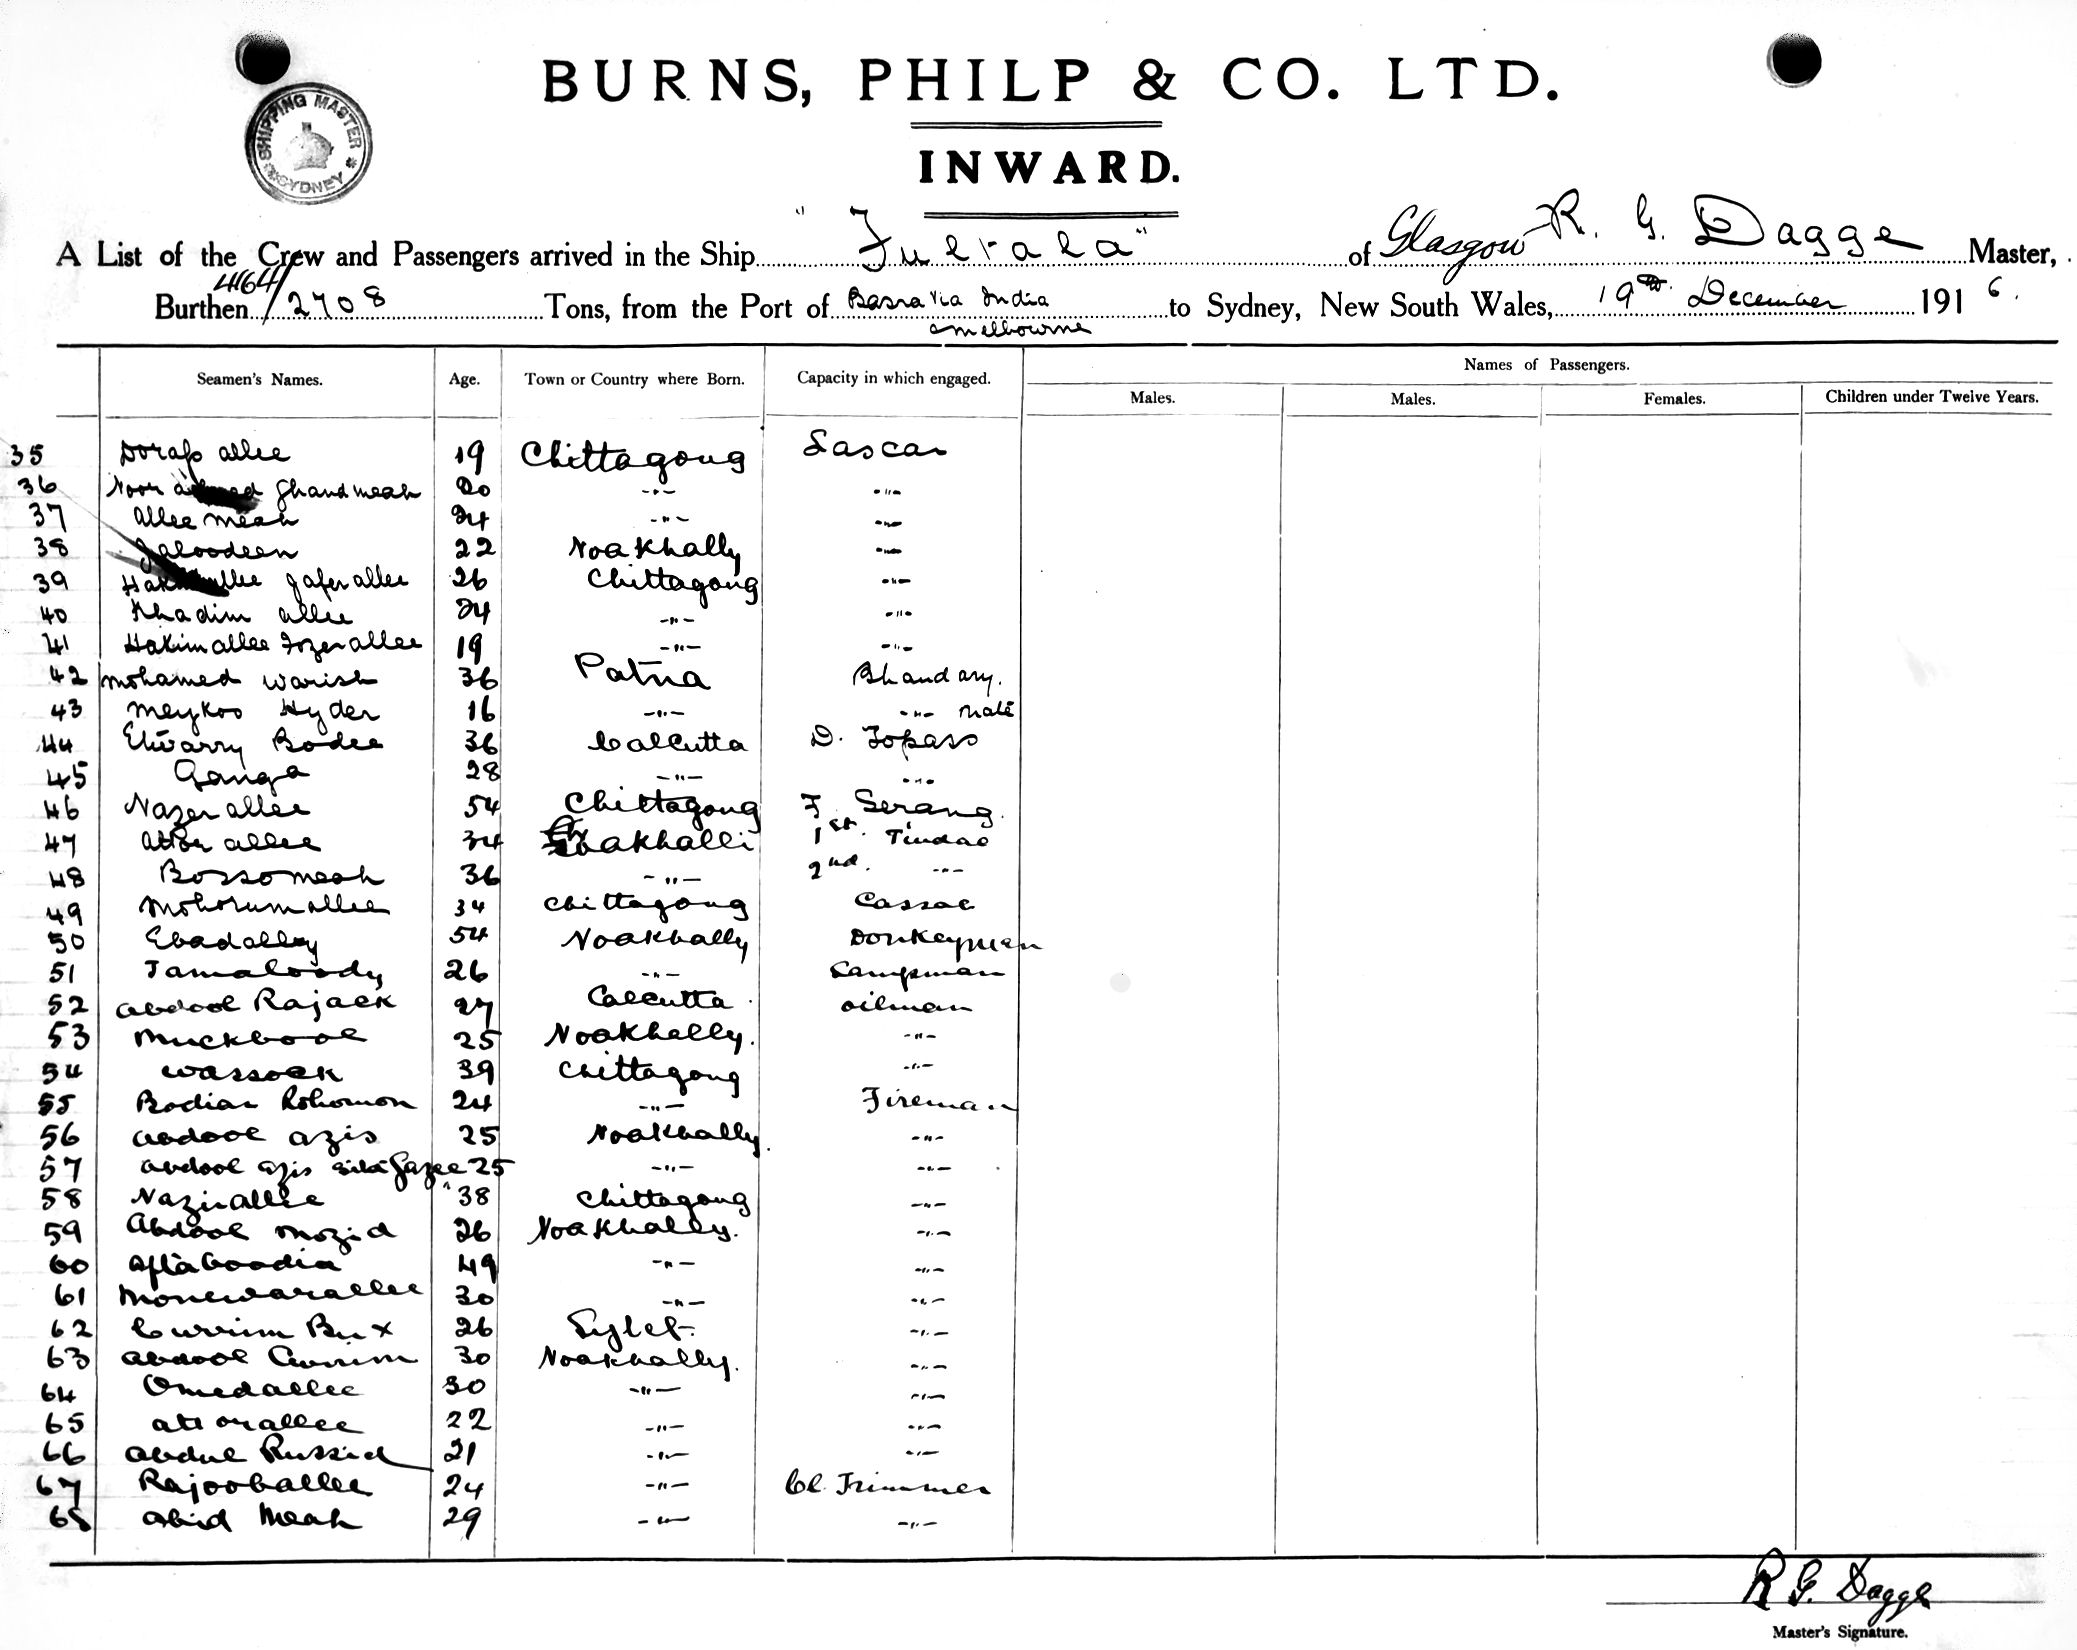 SHIPPING MASTER
SYDNEY
BURNS, PHILP & CO. LTD.
INWARD.
A List of the Crew and Passengers arrived in the Ship "Fultala" of Glasgow R. G. Dagge Master,
Burthen 4164/2708 Tons, from the Port of Basra via India & Melbourne to Sydney, New South Wales, 19th December 1916.
Seamen's Names. Age. Town or Country where Born. Capacity in which engaged. Names of Passengers.
Males. Males. Females. Children under Twelve Years.
35 Dorap allee 19 Chittagong Lascar
36 Noor Ghandmeah 20 -"- -"-
37 allee meah 24 -"- -"-
38 Jaloodeen 22 Noakhally -"-
39 Jafer allee 26 Chittagong -"-
40 Khadim allee 24 -"- -"-
41 Hakim allee Fozer allee 19 -"- -"-
42 Mohamed Warish 36 Patna Bhandary.
43 Meykoo Hyder 16 -"- -"- mate
44 Etwarry Bodee 36 Calcutta D. Topass
45 Ganga 28 -"- -"-
46 Nazer allee 54 Chittagong F Serang.
47 allee 34 Noakhalli 1st. Tindal
48 Bossomeah 36 -"- 2nd. -"-
49 Mohorum allee 34 Chittagong Cassab
50 Ebadalley 54 Noakhally Donkeyman
51 Jamaloody 26 -"- Lampman
52 abdool Rajack 27 Calcutta oilman
53 Muckbool 25 Noakhally. -"-
54 wasseek 39 Chittagong -"-
55 Bodiar Rohomon 24 -"- Fireman
56 abdool azis 25 Noakhally -"-
57 abdool azis Gazee 25 -"- -"-
58 Nazirallee 38 Chittagong -"-
59 Abdool Mozid 26 Noakhally. -"-
60 aftaboodin 49 -"- -"-
61 Monewarallee 30 -"- -"-
62 Currim Bux 26 Sylet. -"-
63 abdool Currim 30 Noakhally. -"-
64 Omedallee 30 -"- -"-
65 attorallee 22 -"- -"-
66 abdul Russid 21 -"- -"-
67 Rajooballee 24 -"- Cl. Trimmer
68 abid Meah 29 -"- -"-
R G. Dagge
Master's Signature.